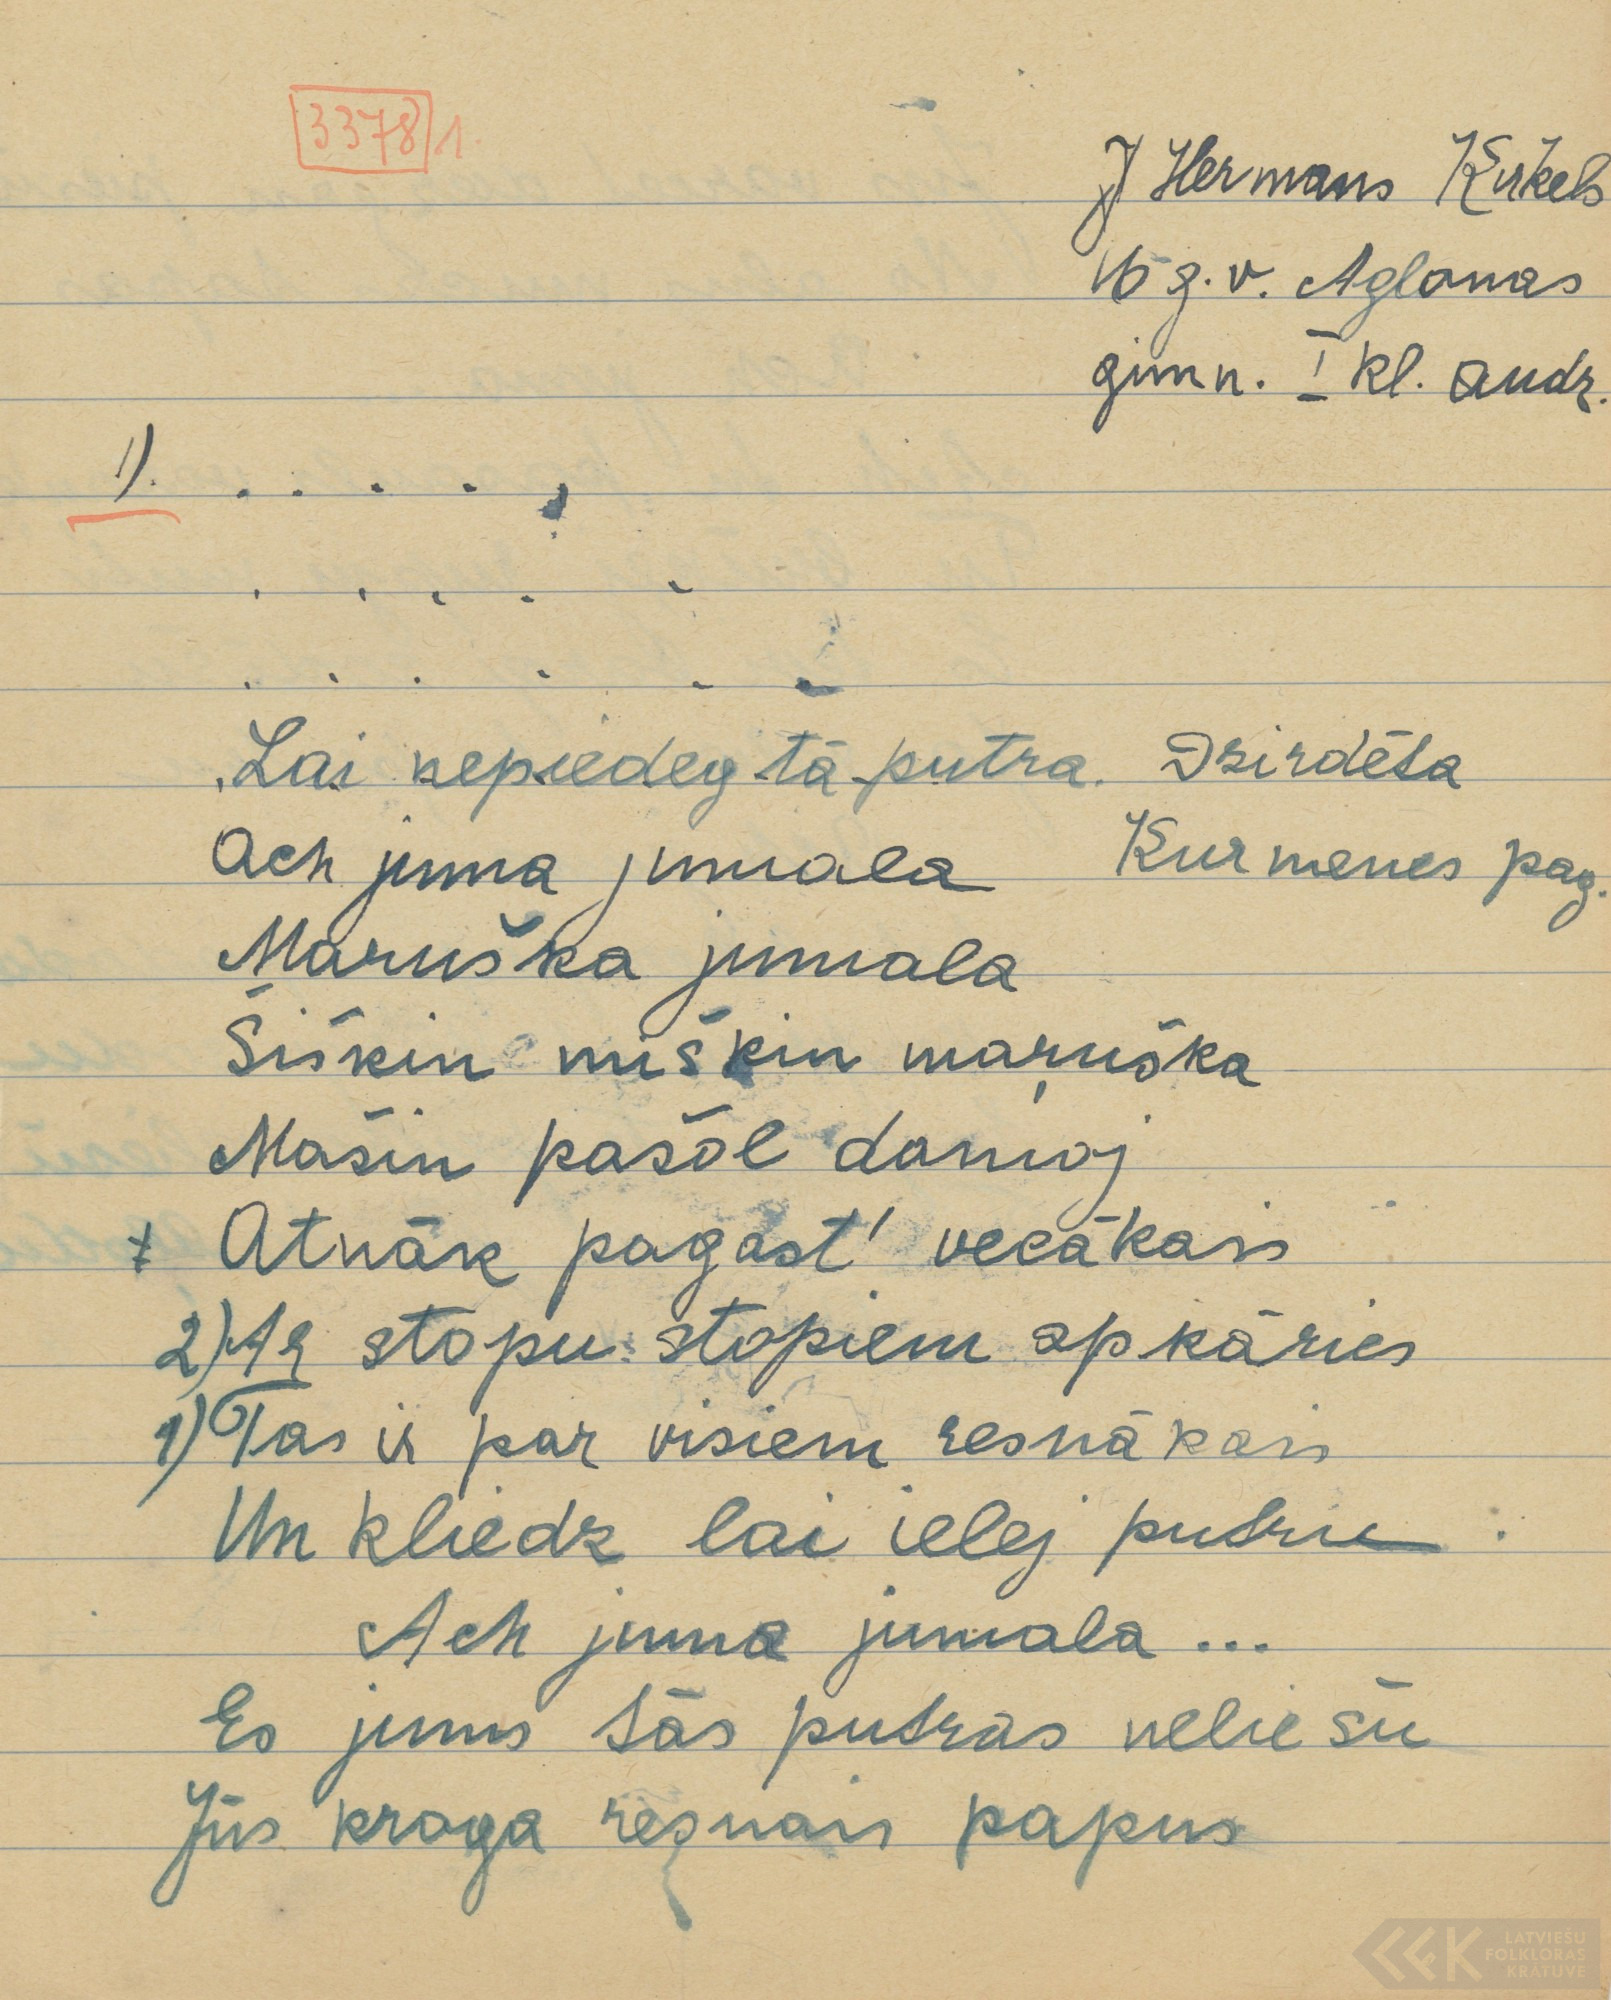 3378 1.
J Hermans Kukels
16 g. v. Aglonas
gimn. I kl. audz.
1). . . . . ,
. . . . .
. . . . . .
Lai nepiedeg tā putra. Dzirdēta
Ach juma jumala Kurmenes pag.
Maruška jumala
Šiškin miškin maŗuška
Mašin pašol damoj
Atnāk pagast' vecākais
2) Ar stopu stopiem apkāries
1) Tas ir par visiem resnākais
Un kliedz lai ielej putru .
Ach juma jumala ...
Es jums tās putras neliešu
Jūs kroga resnais papus
LATVIEŠU
FOLKLORAS
KRĀTUVE